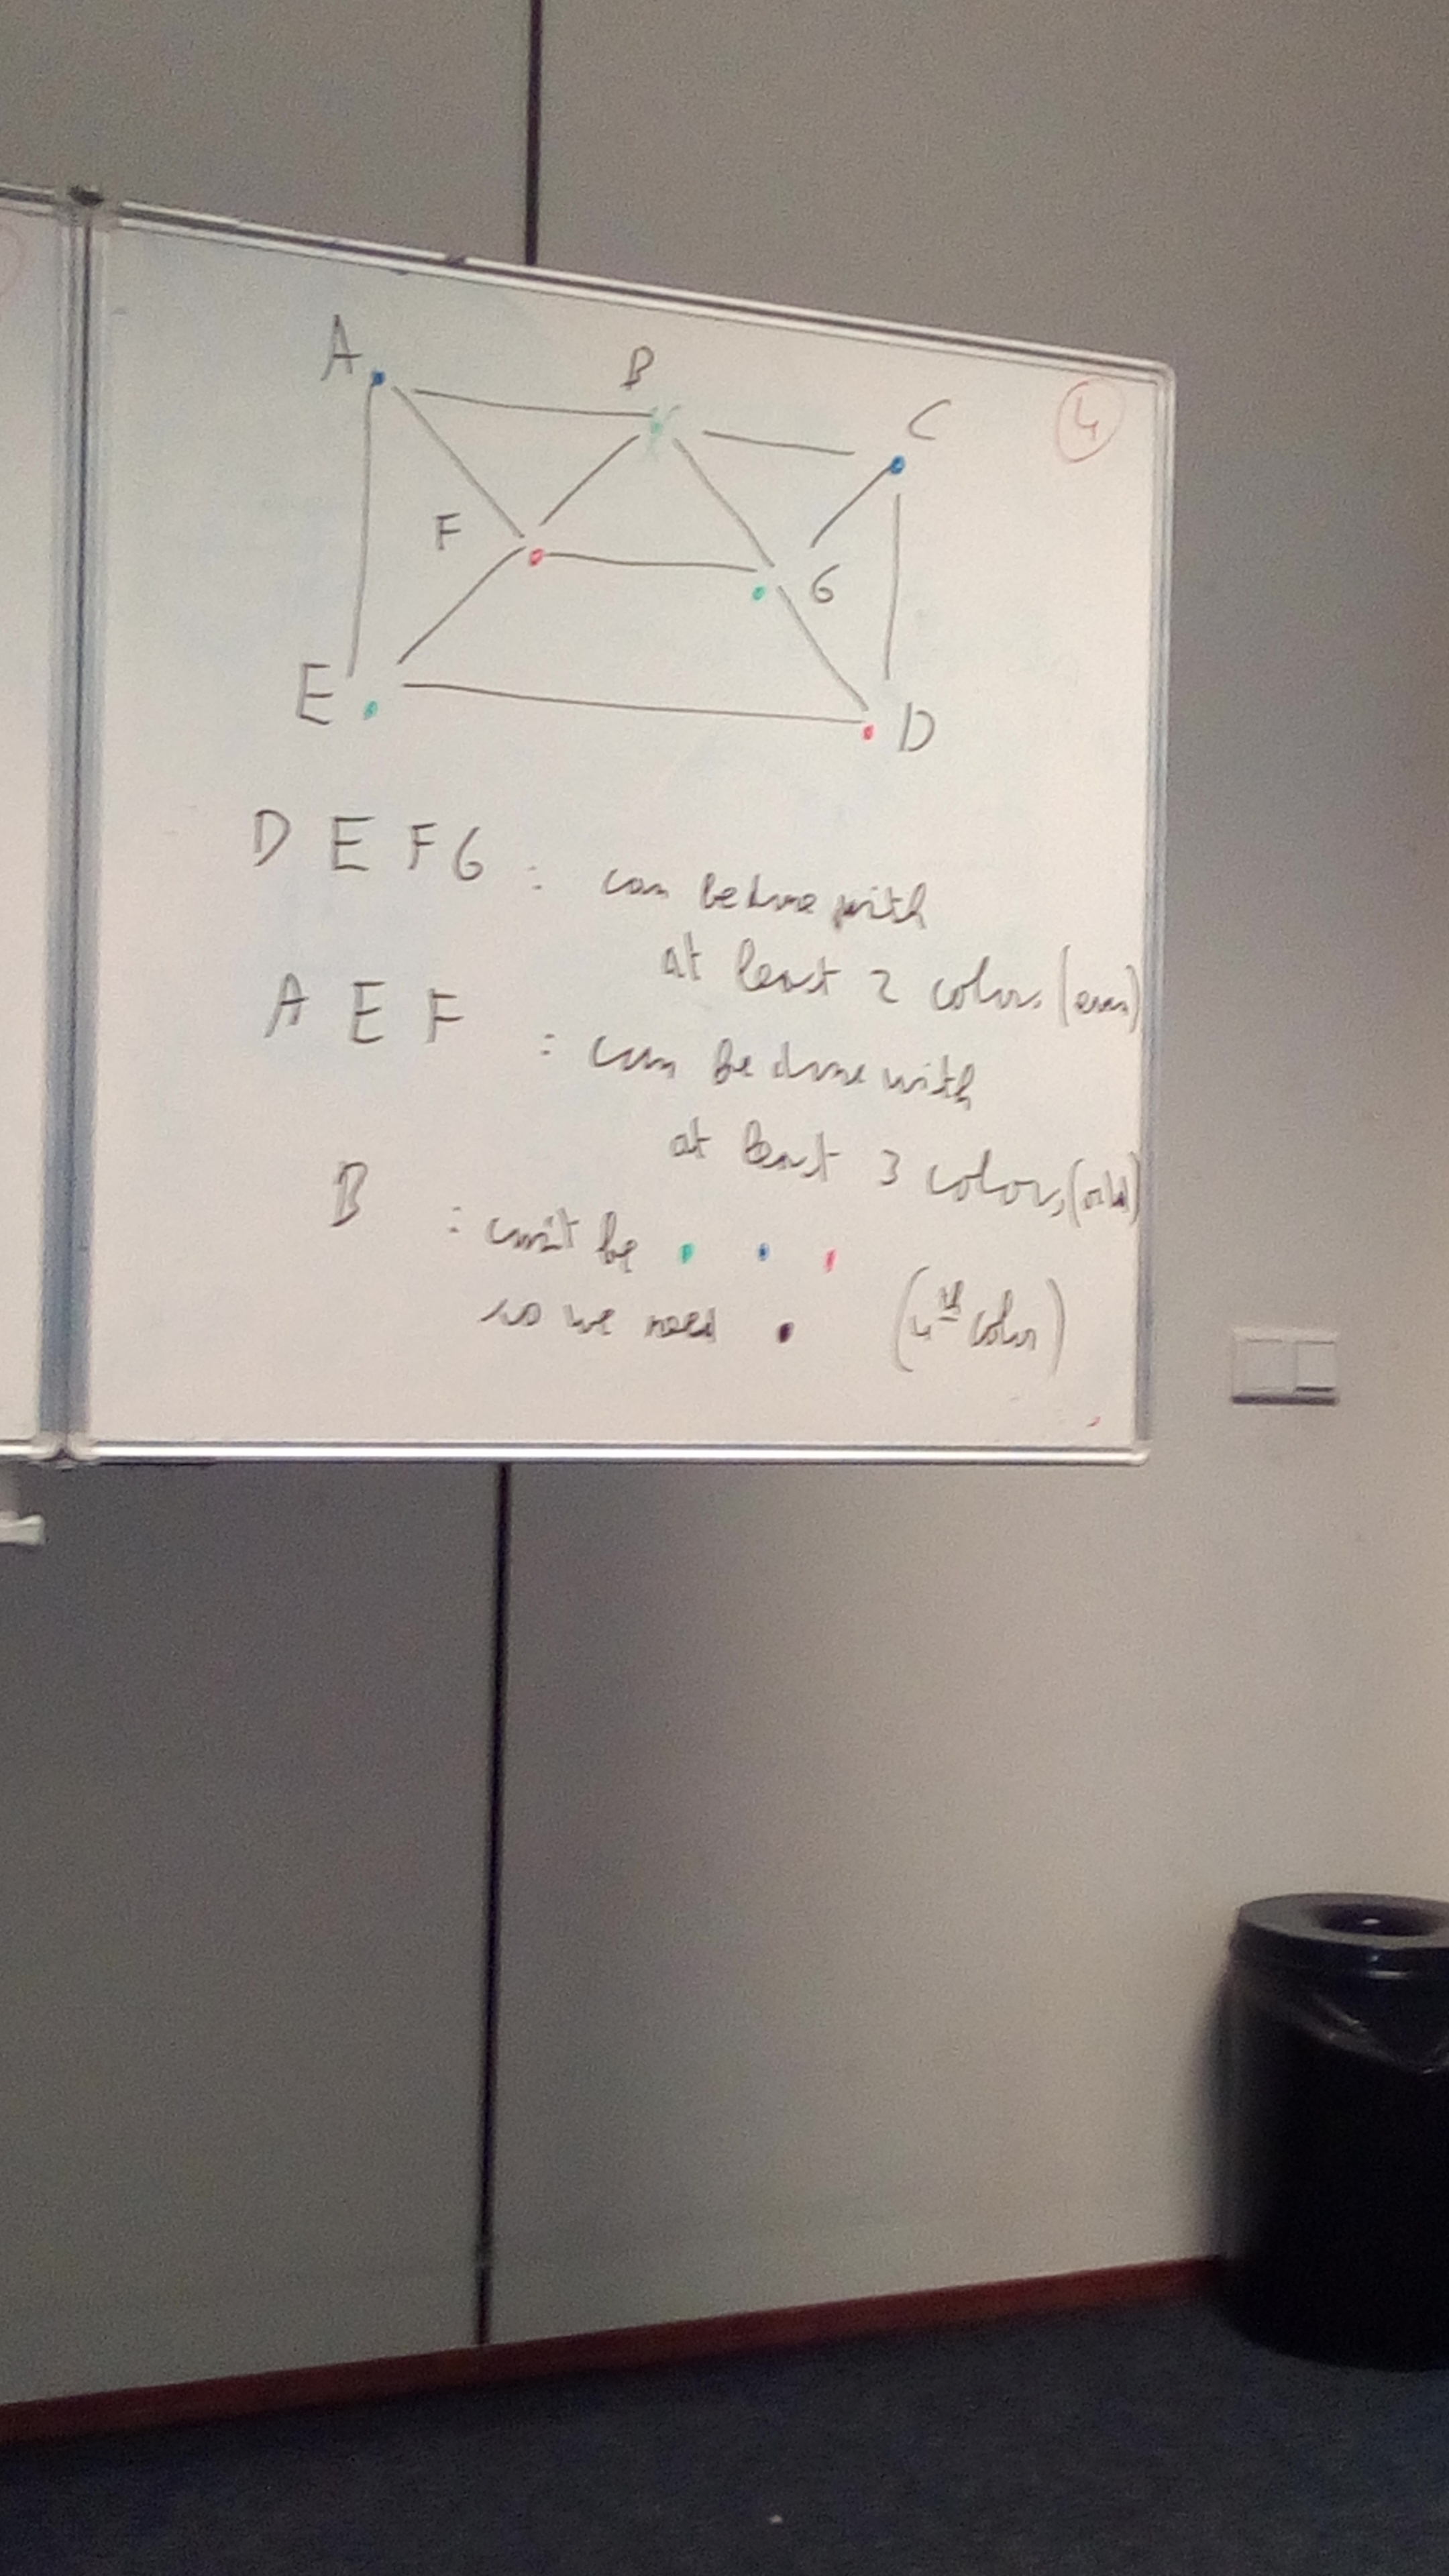 A
B
C
4
F
G
E
D
D E F G : can be done with
at least 2 colors (even)
A E F : can be done with
at least 3 colors, (odd)
B : can't be
so we need (4th color)